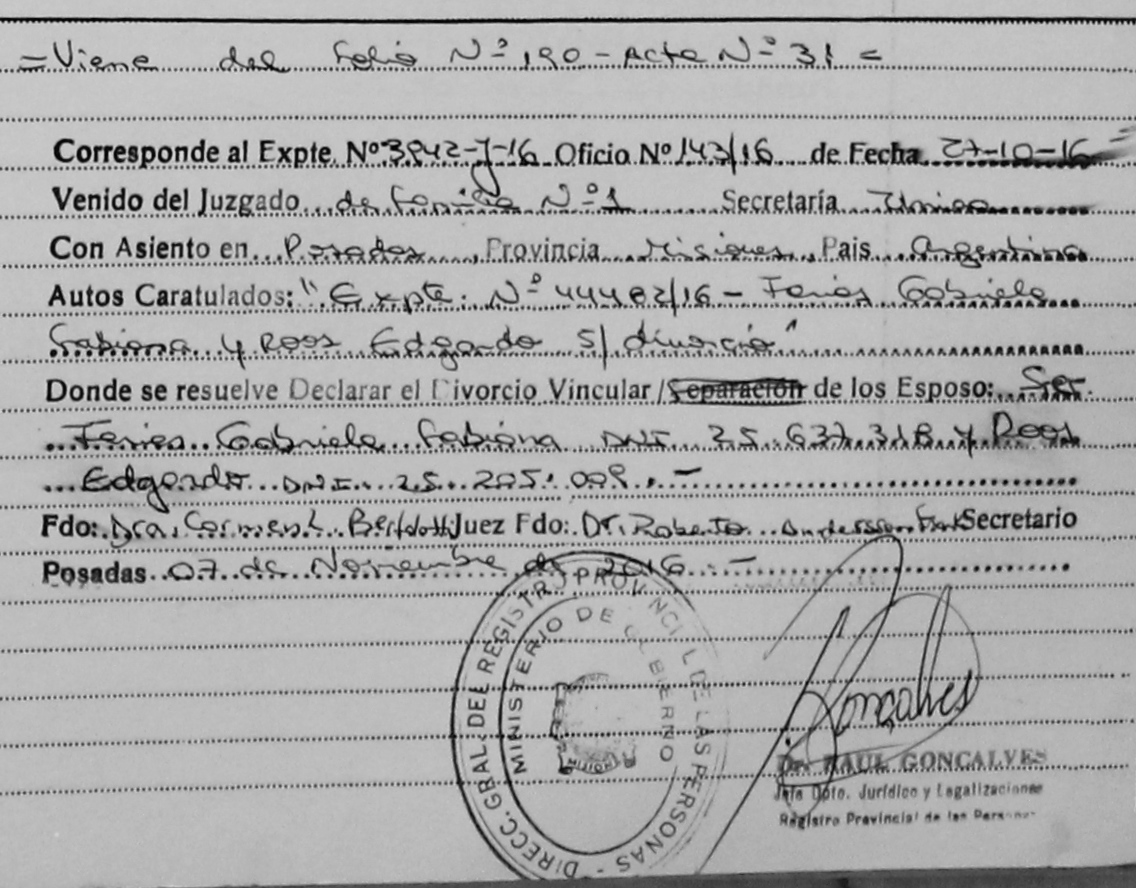 =Viene del Folio Nº 190 - Acta Nº 31 =
Corresponde al Expte. Nº 3842-J-16 Oficio Nº 143/16 de Fecha 27-10-16
Venido del Juzgado de Familia Nº 1 Secretaría Única
Con Asiento en Posadas, Provincia Misiones, Pais Argentina
Autos Caratulados: "Expte. Nº 44482/16 - Gabriela
Fabiana y Roos Edgardo S/ divorcio"
Donde se resuelve Declarar el Divorcio Vincular / Separación de los Esposo:
Gabriela Fabiana DNI 25.637.318 y Roos
Edgardo DNI. 25.205.009.-
Fdo: Dra. Carmen L. Juez Fdo: Dr. Roberto Andersson Secretario
Posadas 07 de Noviembre de 2016.-
DIRECC. GRAL. DEL REGISTRO PROVINCIAL DE LAS PERSONAS -
MINISTERIO DE GOBIERNO
Gonçalves
Dr. RAUL GONCALVES
Jefe Dpto. Jurídico y Legalizaciones
Registro Provincial de las Personas